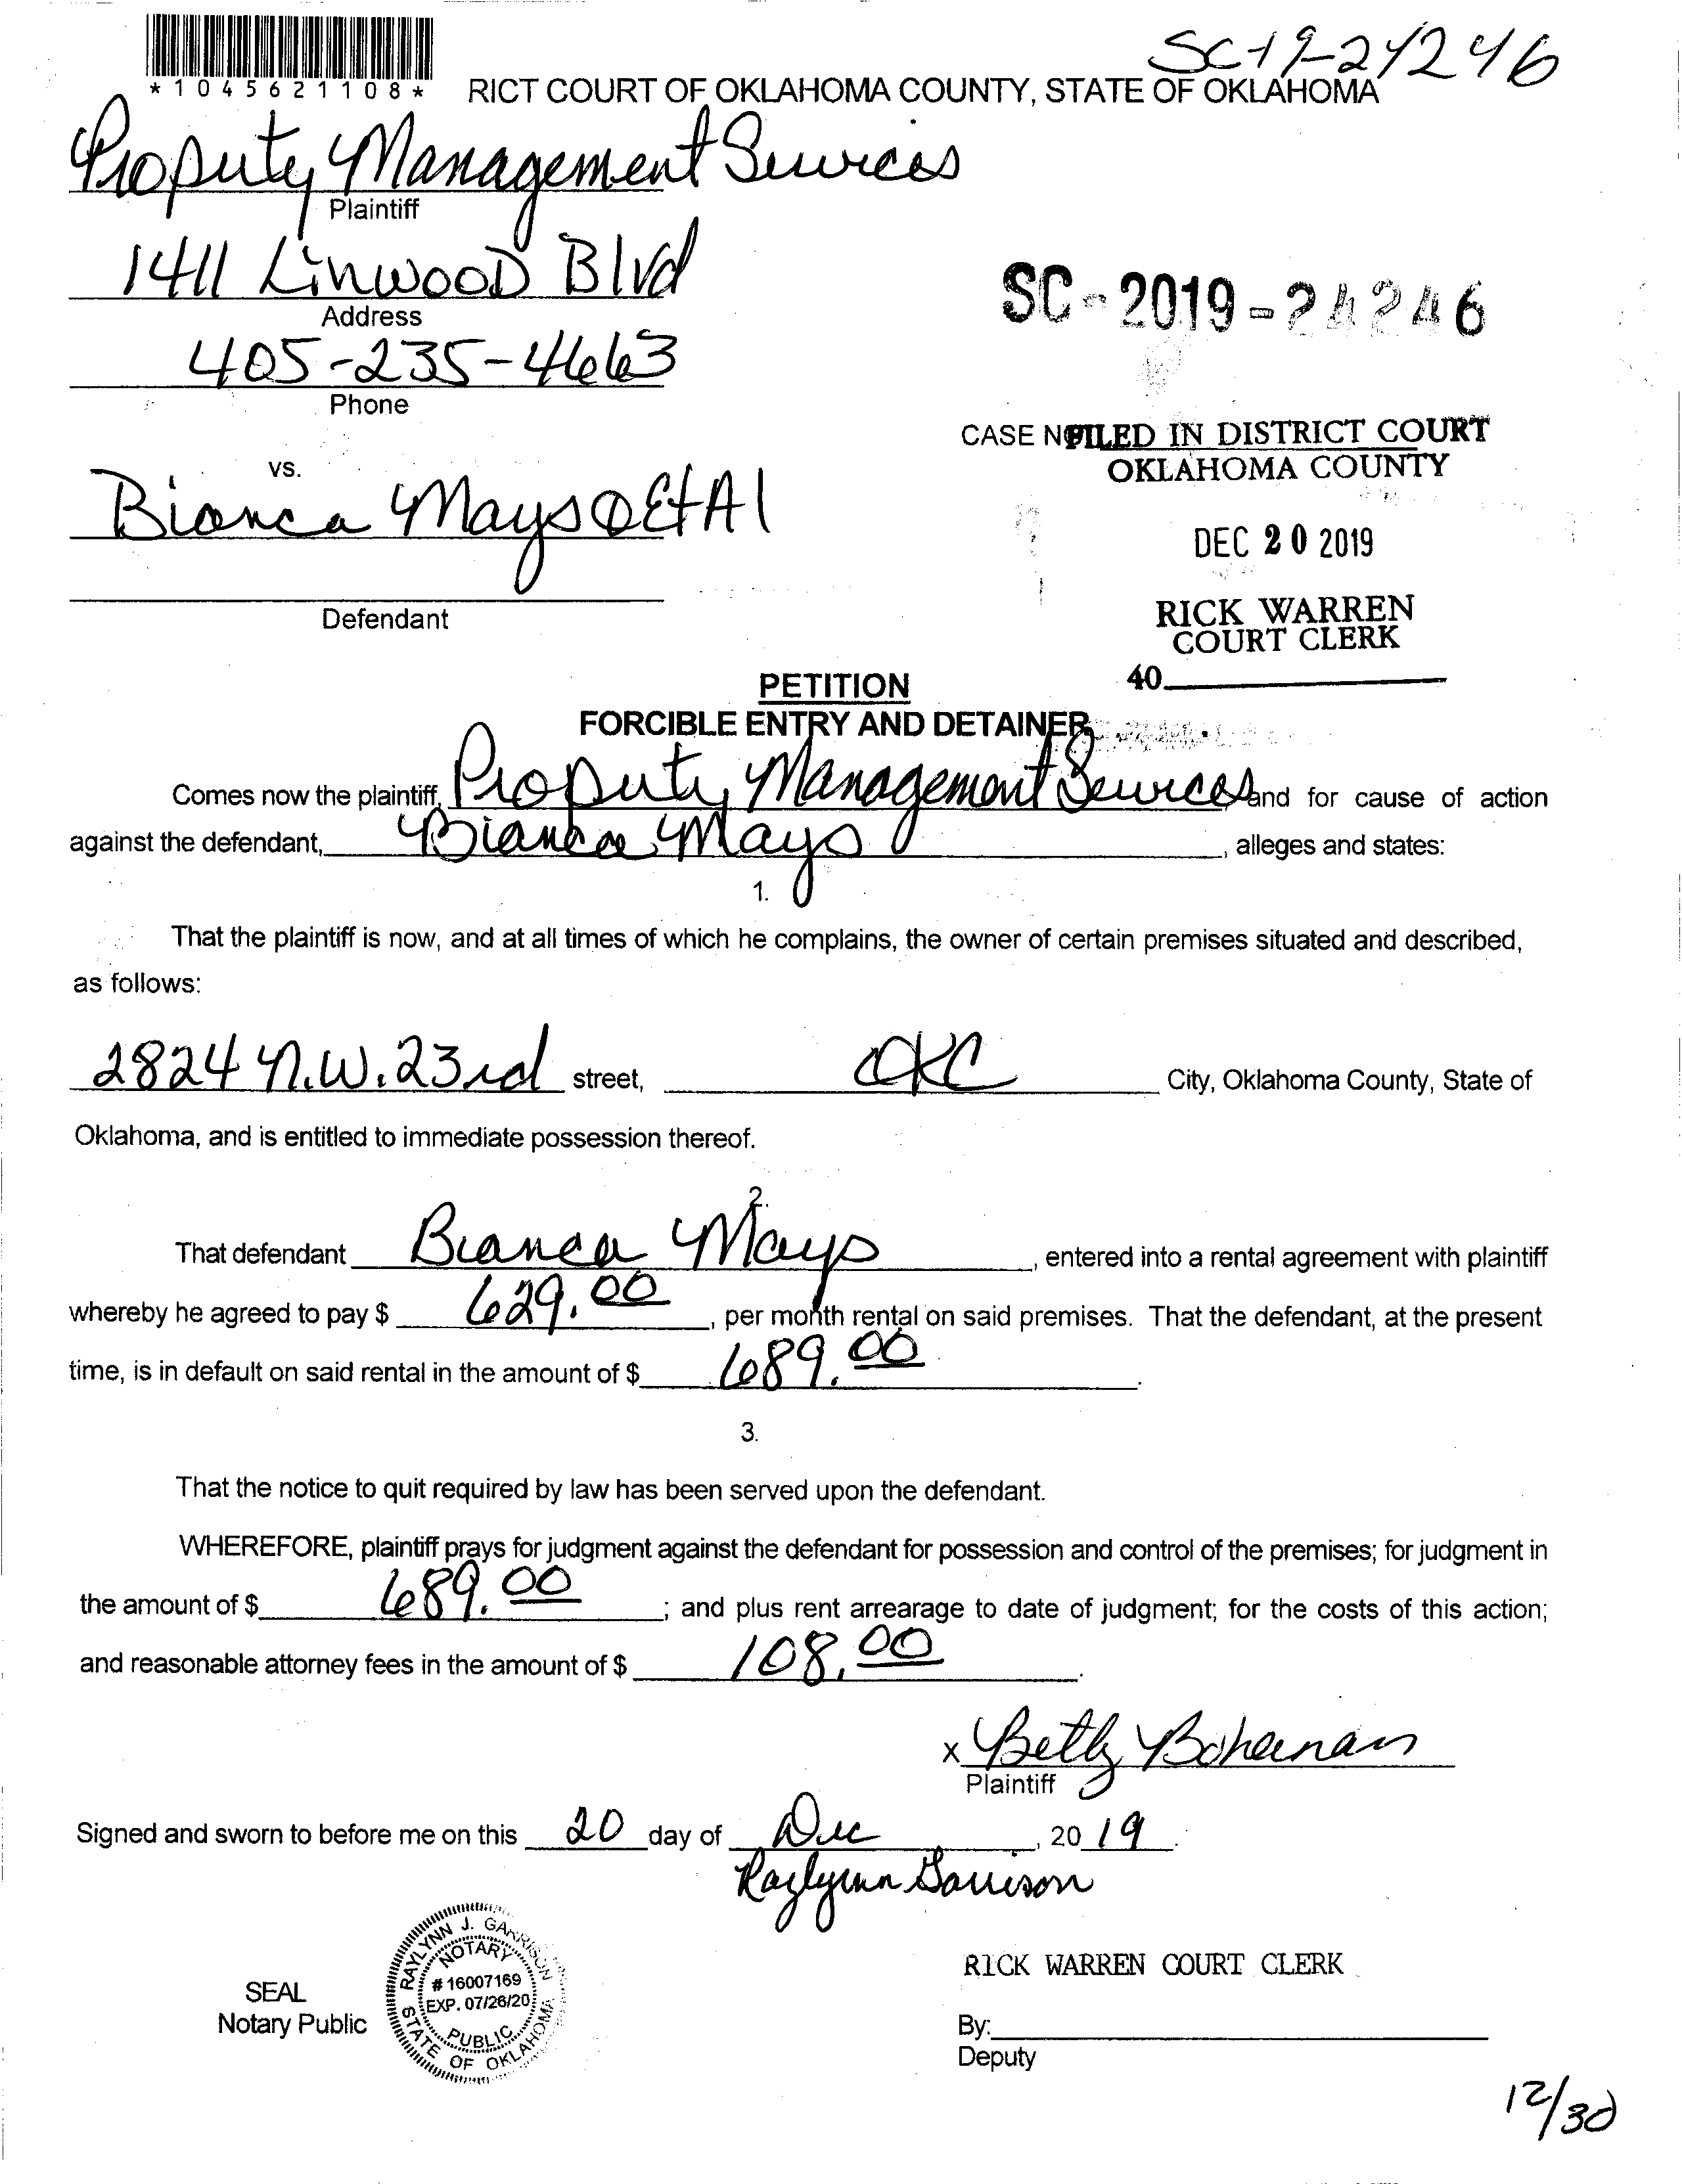 SC-19-24246
*1045621108*
RICT COURT OF OKLAHOMA COUNTY, STATE OF OKLAHOMA
Property Management Services
Plaintiff
1411 Linwood Blvd
Address
SC-2019-24246
405-235-4663
Phone
CASE NO FILED IN DISTRICT COURT
OKLAHOMA COUNTY
vs.
Bianca Mays @ Et Al
DEC 20 2019
Defendant
RICK WARREN
COURT CLERK
40
PETITION
FORCIBLE ENTRY AND DETAINER
Comes now the plaintiff, Property Management Services and for cause of action
against the defendant, Bianca Mays, alleges and states:
1.
That the plaintiff is now, and at all times of which he complains, the owner of certain premises situated and described,
as follows:
2824 N.W. 23rd street, OKC City, Oklahoma County, State of
Oklahoma, and is entitled to immediate possession thereof.
2.
That defendant Bianca Mays, entered into a rental agreement with plaintiff
whereby he agreed to pay $ 629.00, per month rental on said premises. That the defendant, at the present
time, is in default on said rental in the amount of $ 689.00.
3.
That the notice to quit required by law has been served upon the defendant.
WHEREFORE, plaintiff prays for judgment against the defendant for possession and control of the premises; for judgment in
the amount of $ 689.00; and plus rent arrearage to date of judgment; for the costs of this action;
and reasonable attorney fees in the amount of $ 108.00.
x Betty Bohanan
Plaintiff
Signed and sworn to before me on this 20 day of Dec, 2019.
Raylynn Garrison
RAYLYNN J. GARRISON
NOTARY
# 16007169
EXP. 07/26/20
PUBLIC
STATE OF OKLAHOMA
SEAL
Notary Public
RICK WARREN COURT CLERK
By:
Deputy
12/30